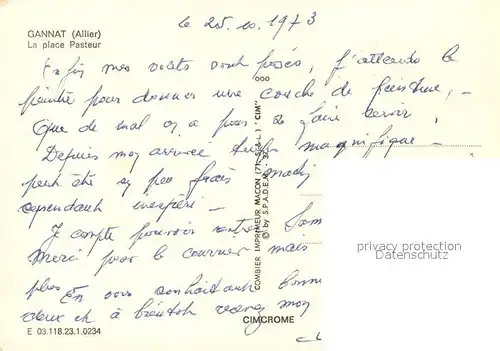 le 25.10.1973
GANNAT (Allier)
La place Pasteur
Enfin mes volets sont posés, j'attends le
peintre pour donner une couche de peinture, -
Que de mal on a pour se faire servir,
Depuis mon arrivée temps magnifique -
peut être un peu frais matin
cependant
Je compte pouvoir rentrer Sam
Merci pour le courrier mais
plus En vous souhaitant bonne
et à bientôt mon
CIMCROME
E 03.118.23.1.0234
COMBIER IMPRIMEUR MACON (71-S.-&-L.) "CIM"
© by S.P.A.D.E.M.
privacy protection
delcampe.net